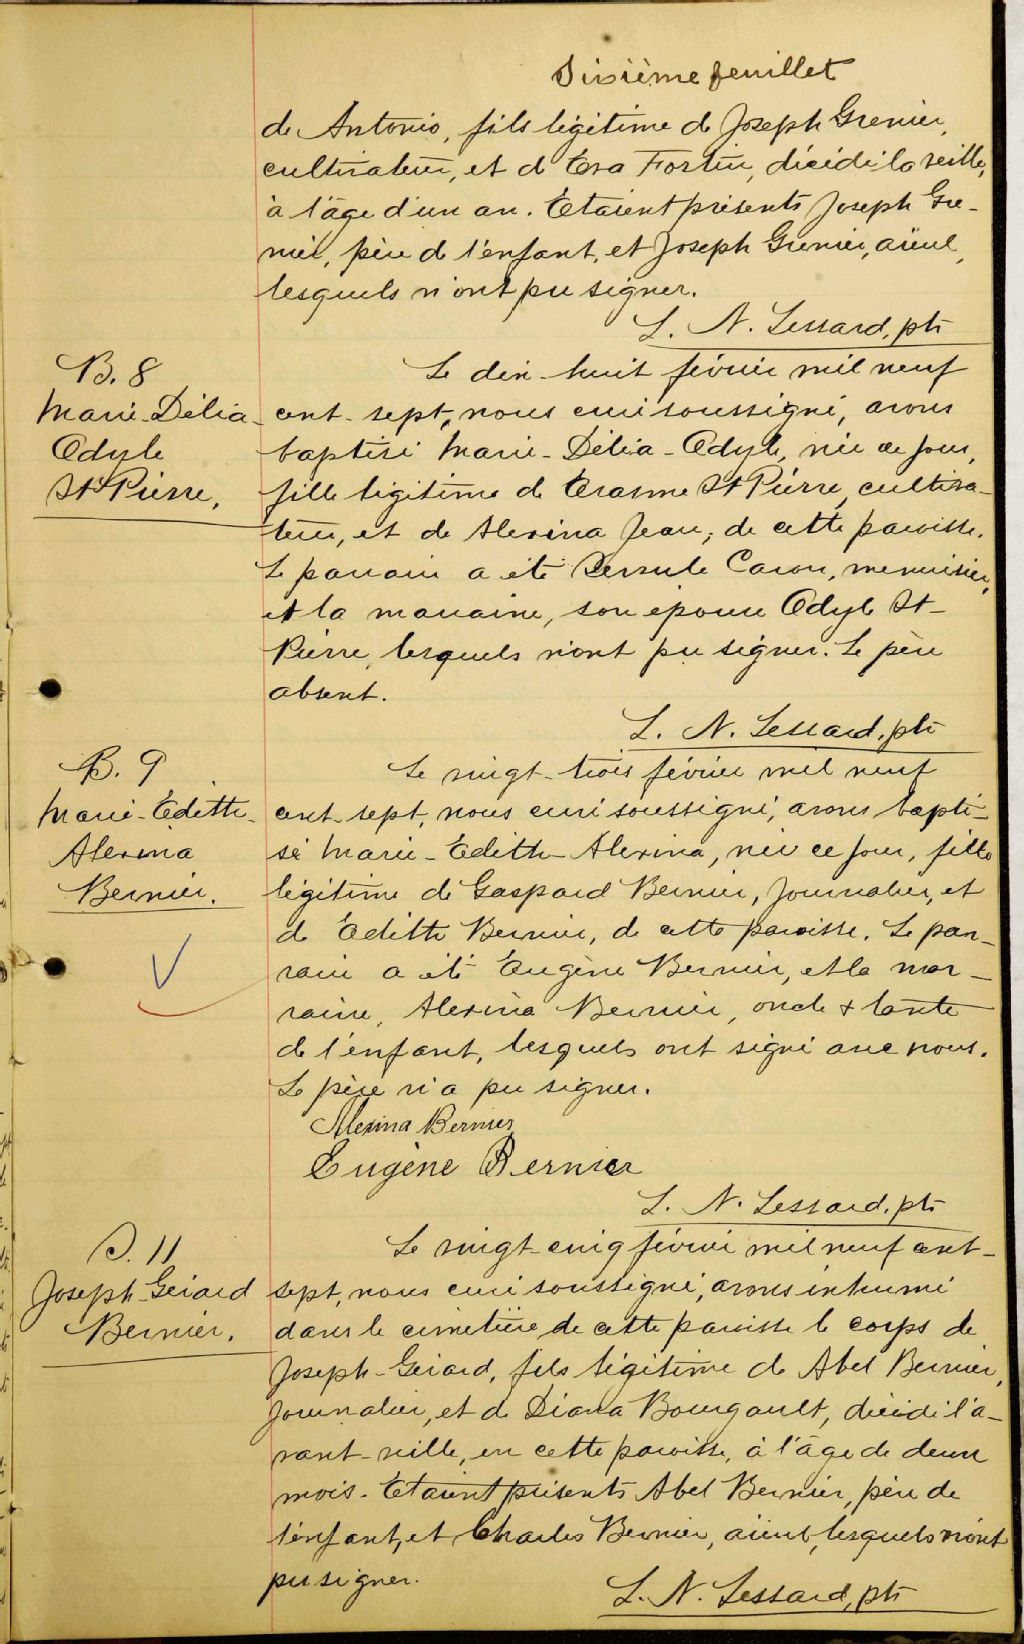 Sixième feuillet
de Antonio, fils légitime de Joseph Grenier,
cultivateur, et de Eva Fortin, décédé la veille,
à l'âge d'un an. Etaient présents Joseph Gre-
nier, père de l'enfant, et Joseph Grenier, aïeul,
lesquels n'ont pu signer.
L. N. Lessard, ptr
B. 8
Marie-Délia-
Odyle
St Pierre.
Le dix-huit février mil neuf
cent-sept, nous curé soussigné, avons
baptisé Marie-Délia-Odyle, née ce jour,
fille légitime de Erasme St Pierre, cultiva-
teur, et de Alexina Jean, de cette paroisse.
Le parrain a été Caron, menuisier,
et la marraine, son épouse Odyle St-
Pierre, lesquels n'ont pu signer. Le père
absent.
L. N. Lessard, ptr
B. 9
Marie-Edith-
Alexina
Bernier.
Le vingt-trois février mil neuf
cent-sept, nous curé soussigné, avons bapti-
sé Marie-Edith-Alexina, née ce jour, fille
légitime de Gaspard Bernier, journalier, et
de Edith Bernier, de cette paroisse. Le par-
rain a été Eugène Bernier, et la mar-
raine, Alexina Bernier, oncle & tante
de l'enfant, lesquels ont signé avec nous.
Le père n'a pu signer.
Alexina Bernier
Eugène Bernier
L. N. Lessard, ptr
S. 11
Joseph-Gérard
Bernier.
Le vingt-cinq février mil neuf cent-
sept, nous curé soussigné, avons inhumé
dans le cimetière de cette paroisse le corps de
Joseph-Gérard, fils légitime de Abel Bernier,
journalier, et de Diana Bourgault, décédé l'a-
vant-veille, en cette paroisse, à l'âge de deux
mois. Etaient présents Abel Bernier, père de
l'enfant, et Charles Bernier, aïeul, lesquels n'ont
pu signer.
L. N. Lessard, ptr